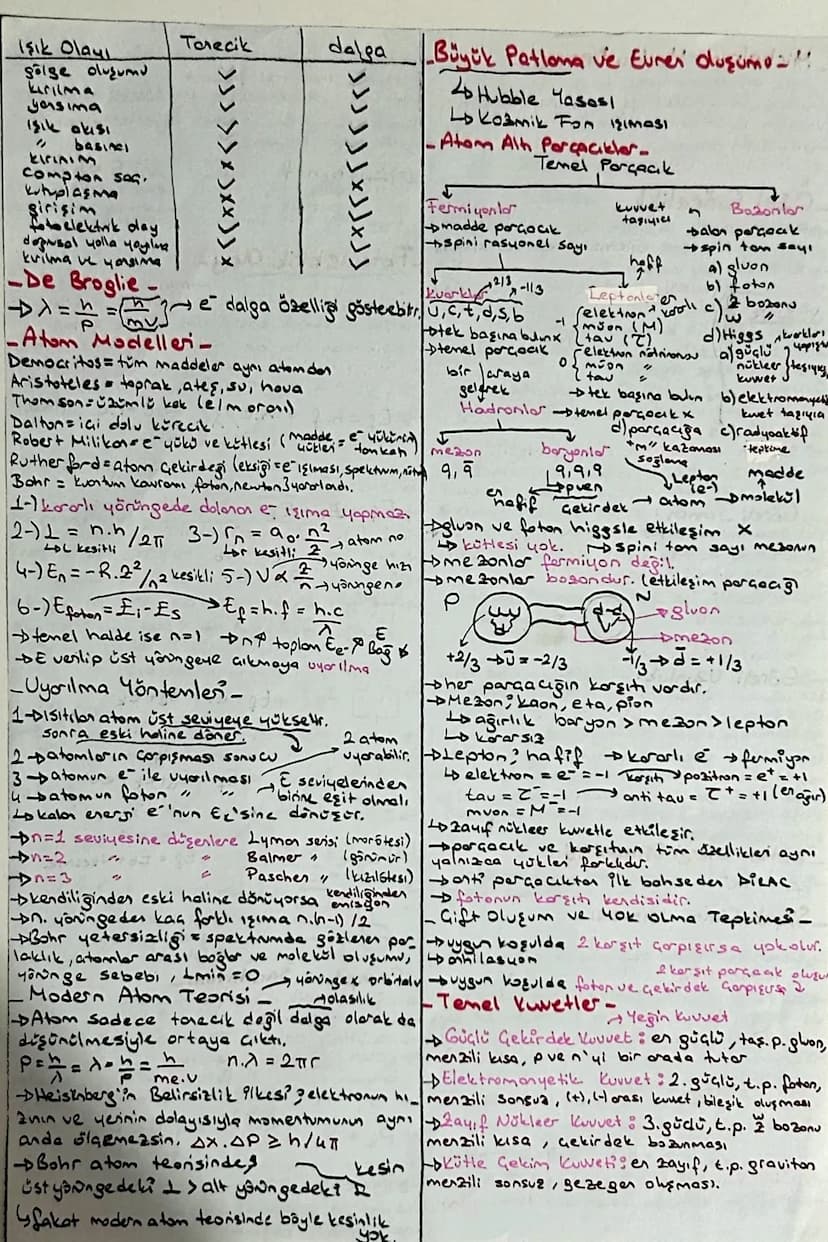 Işık Olayı Tanecik dalga
gölge oluşumu ✓ ✓
kırılma ✓ ✓
yansıma ✓ ✓
ışık akısı ✓ ✓
" basıncı ✓ ✓
kırınım x ✓
compton saç. ✓ x
kutuplaşma x ✓
girişim x ✓
fotoelektrik olay ✓ x
doğrusal yolla yayılma ✓ ✓
kırılma ve yansıma x ✓
-De Broglie-
→ λ = h/P = (h/mv) → e⁻ dalga özelliği gösterebilir.
-Atom Modelleri-
Democritos = tüm maddeler aynı atomdan
Aristoteles = toprak, ateş, su, hava
Thomson = üzümlü kek (e/m oranı)
Dalton = içi dolu kürecik
Robert Milikan = e⁻ yükü ve kütlesi (madde yükleri = e⁻ yükünün tam katı)
Rutherford = atom çekirdeği (eksiği = e⁻ ışıması, spektrum, nötr
Bohr = kuantum kavramı, foton, newton 3 yararlandı.
1-) kararlı yörüngede dolanan e⁻ ışıma yapmaz
2-) L = n.h/2π 3-) rn = a₀. n²/z → atom no
↳ L kesikli ↳ r kesikli
4-) En = -R.z²/n² kesikli 5-) V α z/n → yörünge hızı → yörünge no
6-) Efoton = Ei - Es → Ef = h.f = h.c/λ
→ temel halde ise n=1 → n↑ toplam Ee⁻↗ EBağ ↘
→ E verilip üst yörüngeye çıkmaya uyarılma
-Uyarılma Yöntemleri-
1→ Isıtılan atom üst seviyeye yükselir.
sonra eski haline döner.
2→ atomların çarpışması sonucu 2 atom uyarabilir.
3→ atomun e⁻ ile uyarılması
4→ atomun foton " " → E seviyelerinden birine eşit olmalı
↳ kalan enerji e⁻'nun Ek'sine dönüşür.
→ n=1 seviyesine düşenlere Lyman serisi (morötesi)
→ n=2 " " Balmer " (görünür)
→ n=3 " " Paschen " (kızılötesi)
→ kendiliğinden eski haline dönüyorsa kendiliğinden emisyon
→ n. yörüngeden kaç farklı ışıma n.(n-1)/2
→ Bohr yetersizliği = spektrumda gözlenen par-
laklık, atomlar arası bağlar ve molekül oluşumu,
yörünge sebebi, Lmin = 0 → yörünge x orbital ✓
-Modern Atom Teorisi- → olasılık
→ Atom sadece tanecik değil dalga olarak da
düşünülmesiyle ortaya çıktı.
P = h/λ = λ = h/P = h/me.v n.λ = 2πr
→ Heisenberg'in Belirsizlik ilkesi; elektronun hı-
zının ve yerinin dolayısıyla momentumunun aynı
anda ölçemezsin. Δx.ΔP ≥ h/4π
→ Bohr atom teorisinde; kesin
üst yörüngedeki L > alt yörüngedeki L
↳ fakat modern atom teorisinde böyle kesinlik
yok.
-Büyük Patlama ve Evren oluşumu-!!
↳ Hubble Yasası
↳ Kozmik Fon ışıması
-Atom Altı Parçacıklar-
Temel Parçacık
Fermiyonlar kuvvet taşıyıcı Bozonlar
→ madde parçacık → alan parçacık
→ spini rasyonel sayı → spin tam sayı
hafif a) gluon
Kuarklar 2/3 -1/3 Leptonlar b) foton
U, C, t, d, s, b -1 { elektron → en kararlı c) z w bozonu
→ tek başına bulunx müon (M) d) Higgs
→ temel parçacık tau (τ)
0 { elektron nötrinosu a) güçlü nükleer kuvvet
müon "
tau "
bir araya gelerek → tek başına bulun b) elektromanyetik kuvvet taşıyıcı
Hadronlar → temel parçacık x c) radyoaktif
d) parçacığa "m" kazanması sağlama
mezon baryonlar
q, q̄ q, q, q
Lepton (e⁻) madde
en hafif ← p ve n çekirdek → atom → molekül
→ gluon ve foton higgsle etkileşim x
↳ kütlesi yok. → spini tam sayı mezonun
→ mezonlar fermiyon değil.
→ mezonlar bozondur. (etkileşim parçacığı
P N → gluon
→ mezon
+2/3 → ū = -2/3 -1/3 → d̄ = +1/3
→ her parçacığın karşıtı vardır.
→ Mezon; kaon, eta, pion
↳ ağırlık baryon > mezon > lepton
↳ kararsız
→ Lepton; hafif → kararlı e⁻ → fermiyon
↳ elektron = e⁻ = -1 karşıtı pozitron = e⁺ = +1
tau = τ⁻ = -1 → anti tau = τ⁺ = +1 (en ağır)
muon = M⁻ = -1
↳ zayıf nükleer kuvvetle etkileşir.
→ parçacık ve karşıtının tüm özellikleri aynı
yalnızca yükleri farklıdır.
→ anti parçacıktan ilk bahseden DİRAC
→ fotonun karşıtı kendisidir.
-Çift Oluşum ve Yok olma Tepkimesi-
→ uygun koşulda 2 karşıt çarpışırsa yok olur.
↳ anhilasyon
→ uygun koşulda foton ve çekirdek çarpışırsa 2 karşıt parçacık oluşu
-Temel Kuvvetler-
→ Yeğin kuvvet
→ Güçlü Çekirdek Kuvvet: en güçlü, taş.p. gluon,
menzili kısa, p ve n'yi bir arada tutar
→ Elektromanyetik Kuvvet: 2. güçlü, t.p. foton,
menzili sonsuz, (+), (-) arası kuvvet, bileşik oluşması
→ Zayıf Nükleer Kuvvet: 3. güçlü, t.p. w z bozonu
menzili kısa, çekirdek bozunması
→ Kütle Çekim Kuvveti: en zayıf, t.p. graviton
menzili sonsuz, gezegen oluşması.